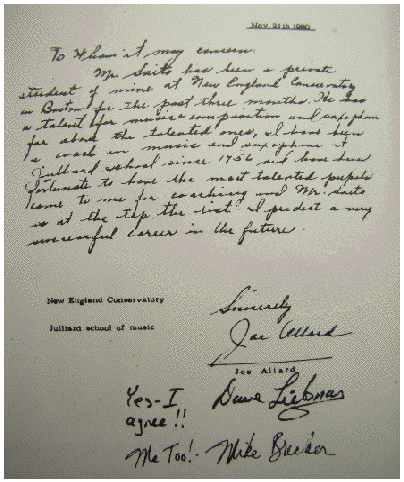 Nov 21th 1980
To Whom it may concern:
Mr Saito has been a private
student of mine at New England Conservatory
in Boston for the past three months. He has
a talent for music composition and saxophone
far above the talented ones, I have been
a coach in music and saxophone at
Julliard school since 1956 and have been
fortunate to have the most talented pupils
come to me for coaching and Mr. Saito
is at the top the list. I predict a very
successful career in the future.
New England Conservatory
Sincerely
Julliard school of music
Joe Allard
Joe Allard
Yes-I
agree!!
Dave Liebman
Me Too!- Mike Brecker